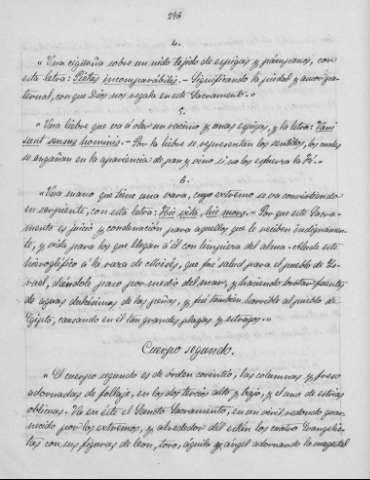 296
4.
« Una cigüeña sobre un nido tejido de espigas y pámpanos, con
esta letra: Pietas incomparabilis. - Significando la piedad y amor pa-
ternal, con que Dios nos regala en este Sacramento. »
5.
« Una liebre que va á oler un racimo y unas espigas, y la letra: Vani
sunt sensus hominis. - Por la liebre se representan los sentidos, los cuales
se engañan en la apariencia de pan y vino si no los esfuerza la Fé. »
6.
« Una mano que tiene una vara, cuyo extremo se va convirtiendo
en serpiente, con esta letra: Hic vita, hic mors. - Por que este Sacra-
mento es juicio y condenación para aquellos que le reciben indignamen-
te, y vida para los que llegan á él con limpieza del alma. Alude este
hieroglífico á la vara de Moisés, que fué salud para el pueblo de Is-
rael, dándole paso por medio del mar, y haciendo brotar fuentes
de aguas dulcísimas de las peñas, y fué también horrible al pueblo de
Egipto, causando en él tan grandes plagas y estragos. »
Cuerpo segundo.
« El cuerpo segundo es de órden corintio, las columnas y friso
adornadas de follaje, en los dos tercios alto y bajo, y el uno de estrías
oblicuas. Va en éste el Santo Sacramento, en un viril redondo guar-
necido por los extremos, y alrededor del están los cuatro Evangelis-
tas con sus figuras de leon, toro, águila y ángel adornando la magestad